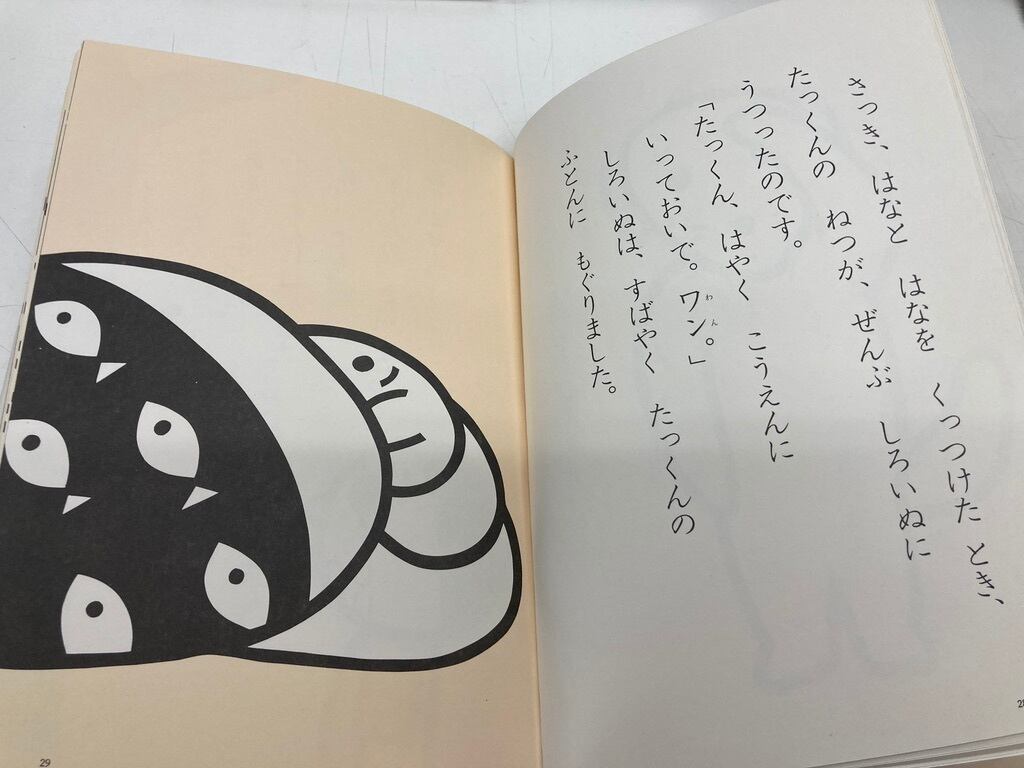 さっき、はなと　はなを　くっつけた　とき、
たっくんの　ねつが、ぜんぶ　しろいぬに
うつったのです。
「たっくん、はやく　こうえんに
いっておいで。ワン。」
わん
しろいぬは、すばやく　たっくんの
ふとんに　もぐりました。
29